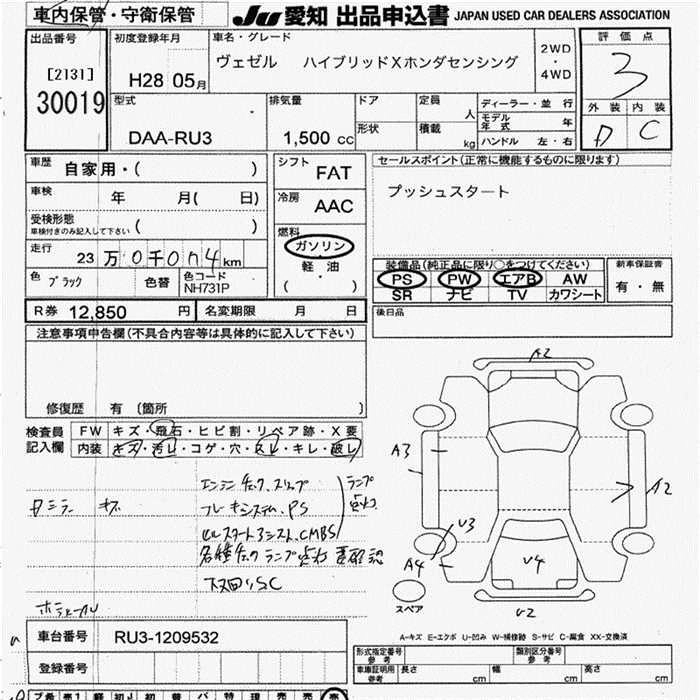 車内保管・守衛保管
JU 愛知 出品申込書 JAPAN USED CAR DEALERS ASSOCIATION
出品番号 初度登録年月 車名・グレード 2WD・4WD 評価点
[2131] H28 05月 ヴェゼル ハイブリッドXホンダセンシング 3
30019 型式 排気量 ドア 定員 人 ディーラー・並 行 外装 内装
モデル年式 年
DAA-RU3 1,500 cc 形状 積載 kg ハンドル 左・右 D C
車歴 自家用・( ) シフト FAT セールスポイント(正常に機能するものに限ります)
車検 年 月( 日) 冷房 AAC プッシュスタート
受検形態 ( )
車検付きのみ記入して下さい
燃料 ガソリン 軽・油 ( )
走行 23万0千074km
装備品(純正品に限り○をつけてください) 新車保証書
PS PW エアB AW 有・無
SR ナビ TV カワシート
色 ブラック 色替 色コード NH731P
R券 12,850 円 名変期限 月 日 後日品
注意事項申告欄(不具合内容等は具体的に記入して下さい)
修復歴 有 (箇所 )
検査員記入欄 FW キズ・飛石・ヒビ割・リペア跡・X要
内装 キズ・汚レ・コゲ・穴・スレ・キレ・破レ
A2
A3
A2
U3
A4
U4
U2
エンジンチェック、スリップ ランプ
ブレーキシステム、PS 点灯
ヒルスタートアシスト、CMBS
各種チェックランプ点灯 要確認
下回りSC
スペア
A-キズ E-エクボ U-凹み W-補修跡 S-サビ C-腐食 XX-交換済
車台番号 RU3-1209532
登録番号
形式指定番号 参考 類別区分番号 参考
車庫証明用 参考 長さ cm 幅 cm 高さ cm